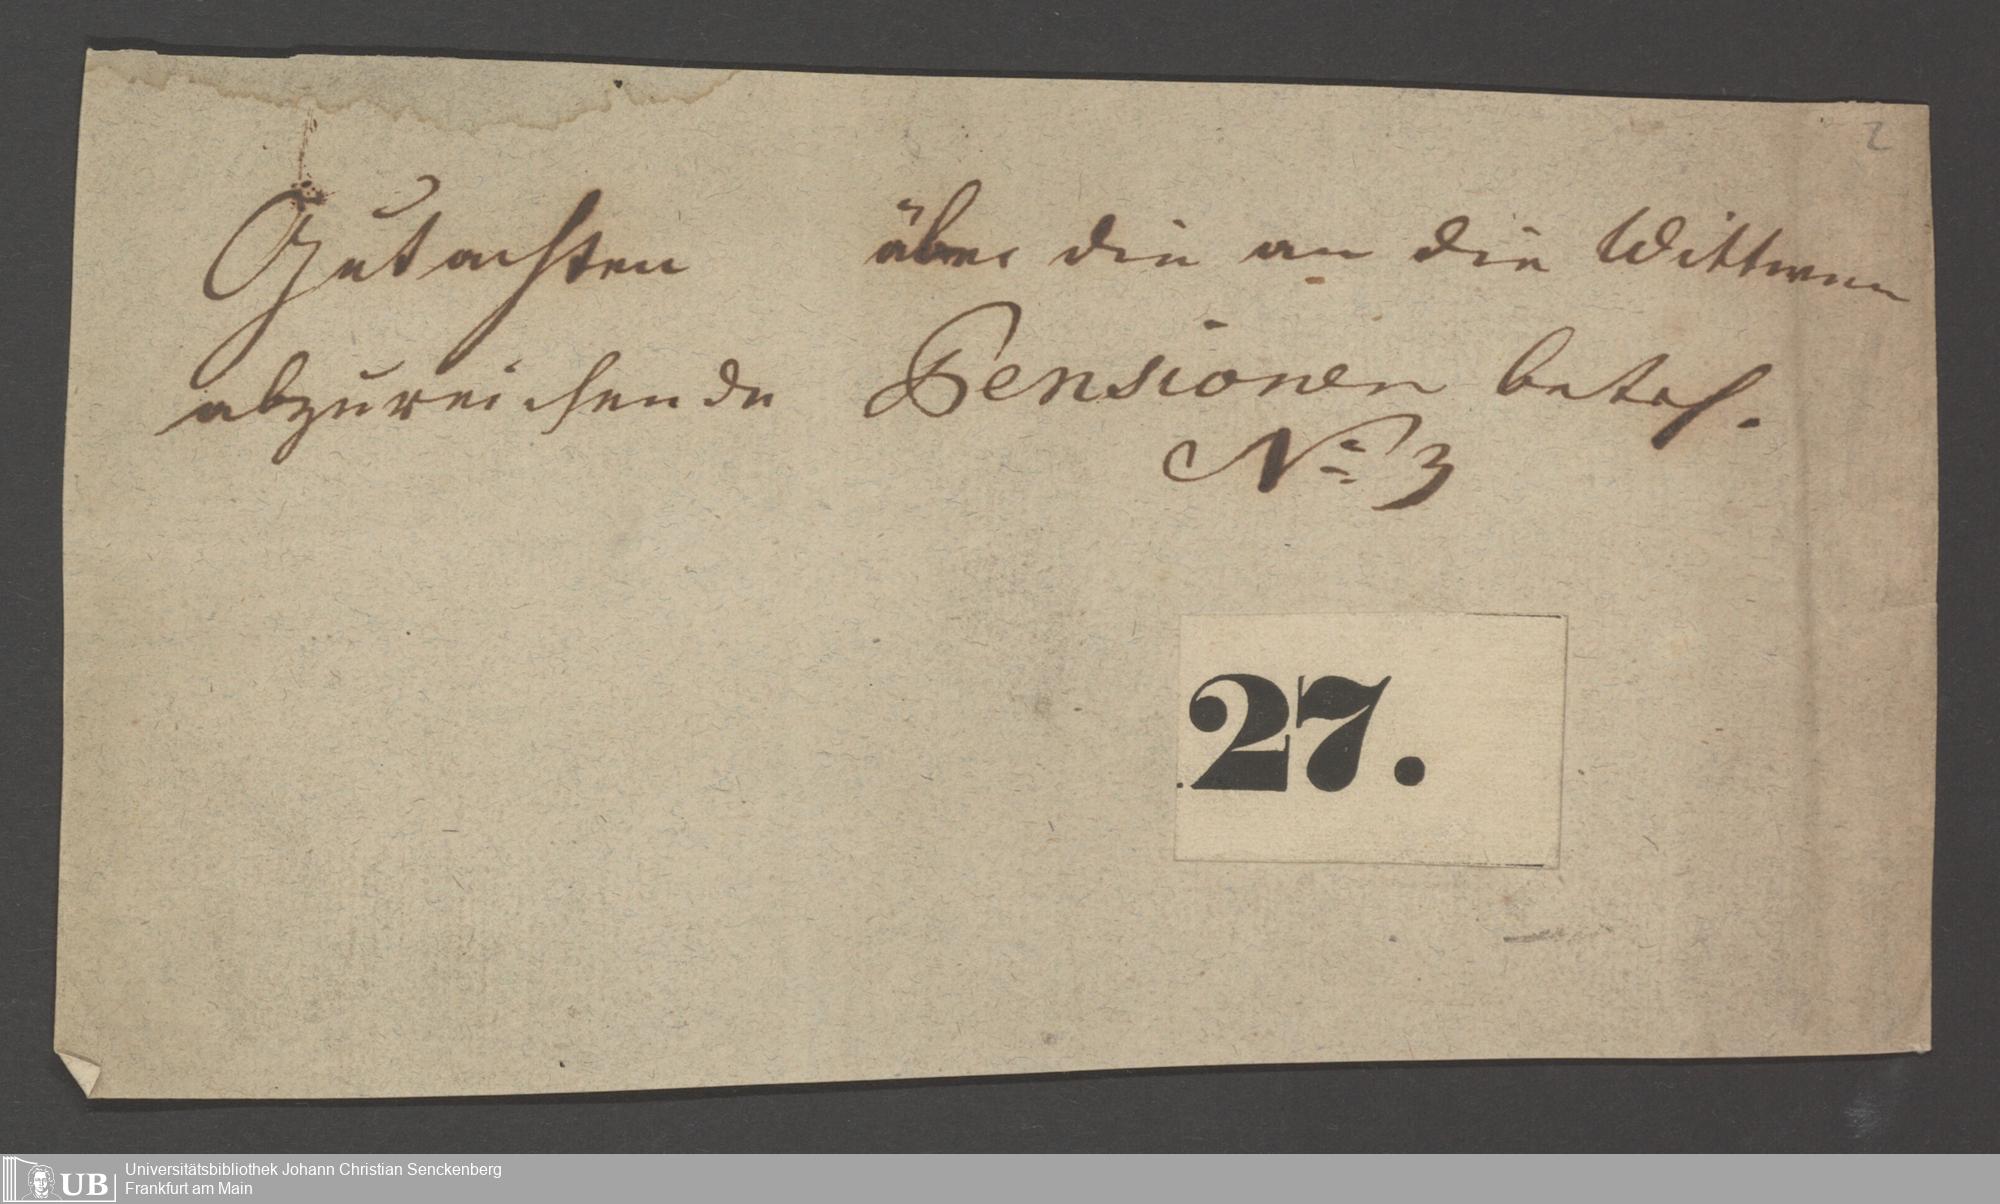 2
Gutachten über die an die Wittwen
abzureichende Pensionen betref.
No 3
27.
UB
Universitätsbibliothek Johann Christian Senckenberg
Frankfurt am Main